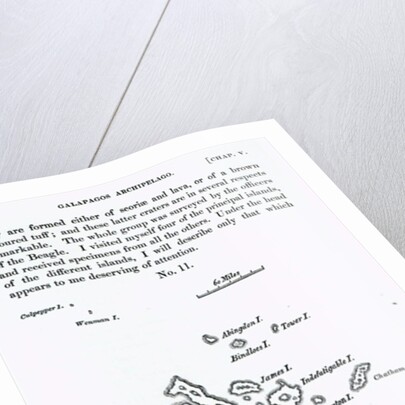 GALAPAGOS ARCHIPELAGO. [CHAP. V.
are formed either of scoriæ and lava, or of a brown
oured tuff; and these latter craters are in several respects
markable. The whole group was surveyed by the officers
of the Beagle. I visited myself four of the principal islands,
and received specimens from all the others. Under the head
of the different islands, I will describe only that which
appears to me deserving of attention.
No. 11.
60 Miles
Culpepper I.
Wenman I.
Abingdon I.
Tower I.
Bindloes I.
James I.
Indefatigable I.
Chatham